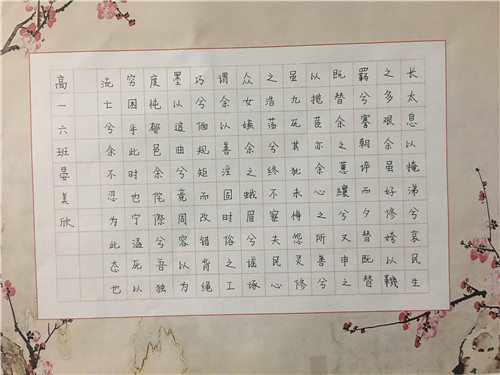 长太息以掩涕兮哀民生
之多艰余虽好修姱以鞿
羁兮謇朝谇而夕替既替
既替余之蕙纕兮又申之
以揽茝亦余心之所善兮
虽九死其犹未悔怨灵修
之浩荡兮终不察夫民心
众女嫉余之蛾眉兮谣诼
谓余以善淫固时俗之工
巧兮偭规矩而改错背绳
墨以追曲兮竟周容以为
度忳郁邑余侘傺兮吾独
穷困乎此时也宁溘死以
流亡兮余不忍为此态也
高一六班晏美欣